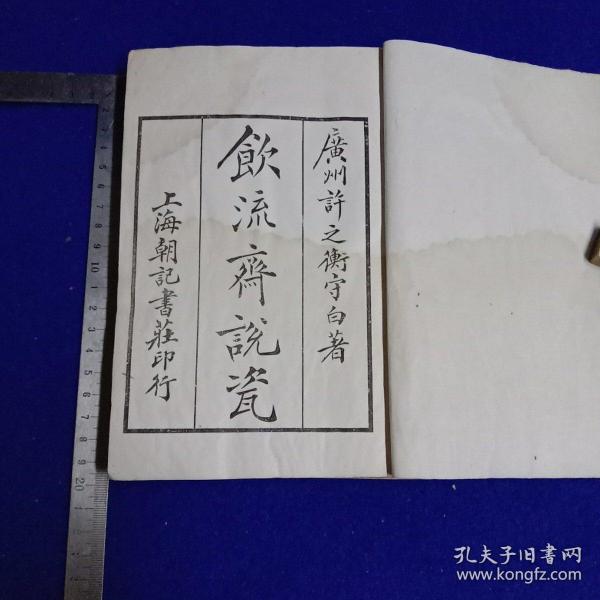 廣州許之衡守白著
飲流齋說瓷
上海朝記書莊印行
孔夫子旧書网
www.kongfz.com